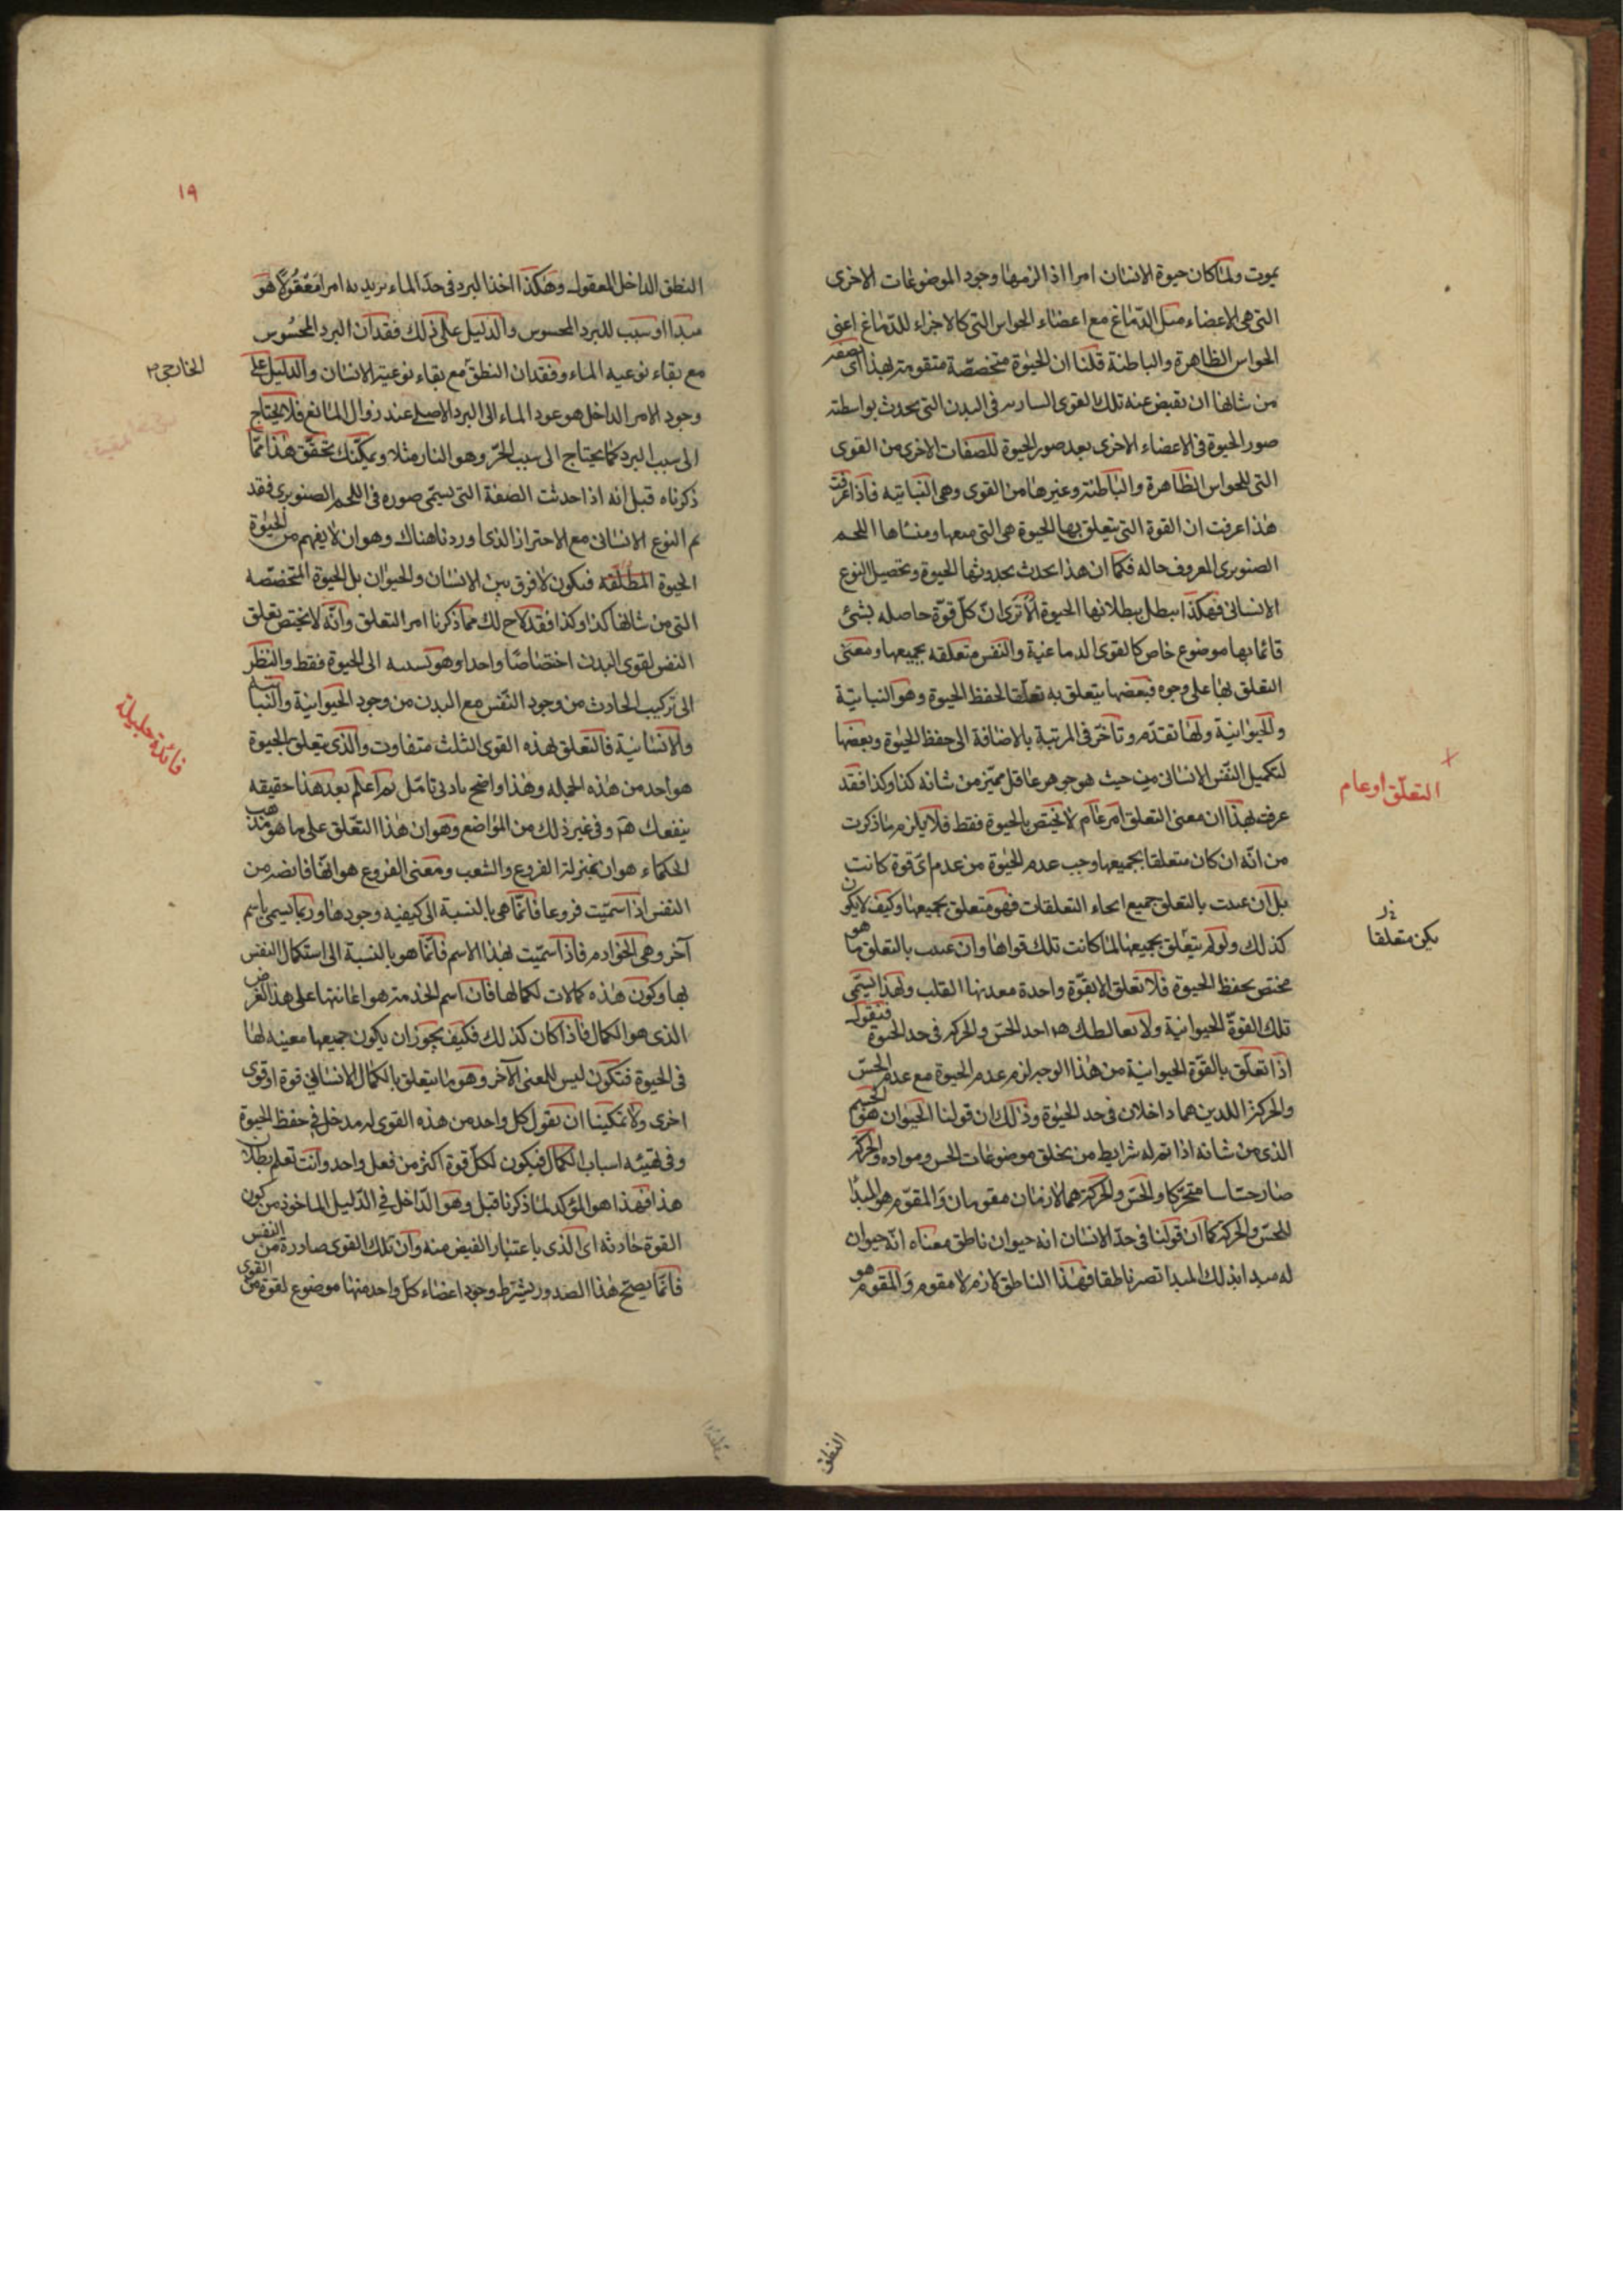 يموت ولما كان حيوة الانسان امرا اذ الزمها وجود الموضوعات الاخرى
التى هى الاعضاء مثل الدماغ مع اعضاء الحواس التى كالاجزاء للدماغ اعنى
الحواس الظاهرة والباطنة قلنا ان الحيوة متخصصة متقومة بهذا اى
من شانها ان يقبض عنه تلك القوى السارية فى البدن التى يحدث بواسطته
صور الحيوة فى الاعضاء الاخرى بعد صور الحيوة للصفات الاخرى من القوى
التى للحواس الظاهرة والباطنة وغيرها من القوى وهى النباتية فاذا عرفت
هذا عرفت ان القوة التى يتعلق بها الحيوة هى التى منبعها ومنشاها اللحم
الصنوبرى المعروف حاله فكما ان هذا يحدث بحدوثها الحيوة وتحصيل النوع
الانسانى فهكذا يبطل ببطلانها الحيوة الا ترى ان كل قوة حاصله بشئ
قائما بها موضوع خاص كالقوى الدماغية والنفس متعلقه بجميعها ومعنى
التعلق بها على وجوه فبعضها يتعلق به تعلقا لحفظ الحيوة وهو النباتية
والحيوانية ولها تقدم وتاخر فى المرتبة بالاضافة الى حفظ الحيوة وبعضها
لتكميل النفس الانسانى من حيث هو جوهر عاقل مميز من شانه كذا وكذا فقد
عرفت بهذا ان معنى التعلق امر عام لا يختص بالحيوة فقط فلا يلزم ما ذكرت
من انه ان كان متعلقا بجميعها وجب عدم الحيوة من عدم اى قوة كانت
بل ان عنيت بالتعلق جميع انحاء التعلقات فهو متعلق بجميعها وكيف لا يكون
كذلك ولو لم يتعلق بجميعها لما كانت تلك قواها وان عنيت بالتعلق ما هو
مختص بحفظ الحيوة فلا تعلق الا بقوة واحدة معدنها القلب ولهذا يسمى
تلك القوة الحيوانية ولا يغالطك اخذ الحس والحركة فى حد الحيوة فتقول
اذا تعلق بالقوة الحيوانية من هذا الوجه لزم عدم الحيوة مع عدم الحس
والحركة اللذين هما داخلان فى حد الحيوة وذلك ان قولنا الحيوان هو الجسم
الذى من شانه اذا تم له شرايط من يخلق موضوعات الحس ومواده والحركة
صار حساسا متحركا والحس والحركة هما لازمان مقومان والمقوم هو المبدا
للحس والحركة كما ان قولنا فى حد الانسان انه حيوان ناطق معناه انه حيوان
له مبدا بذلك المبدا تصير ناطقا فهذا الناطق لازم لا مقوم والمقوم هو
التعلق او عام
يكن متعلقا
النطق
١٩
النطق الداخل المعقول وهكذا اخذنا البرد فى حد الماء نريد به امرا معقولا هو
مبدا او سبب للبرد المحسوس والدليل على ذلك فقدان البرد المحسوس
مع بقاء نوعيه الماء وفقدان النطق مع بقاء نوعية الانسان والدليل على
وجود الامر الداخل هو عود الماء الى البرد الاصلى عند زوال المانع فلا يحتاج
الى سبب البرد كما يحتاج الى سبب الحر وهو النار مثلا ويمكنك تحقق هذا مما
ذكرناه قبل انه اذا حدثت الصفة التى يسمى صوره فى اللحم الصنوبرى فقد
تم النوع الانسانى مع الاحتراز الذى اوردناه هناك وهو ان لا يفهم من الحيوة
الحيوة المطلقه فيكون لا فرق بين الانسان والحيوان بل الحيوة المتخصصه
التى من شانها كذا وكذا فقد لاح لك مما ذكرنا امر التعلق وانه لا يختص تعلق
النفس لقوى البدن اختصاصا واحدا وهو نسبته الى الحيوة فقط والنظر
الى تركيب الحادث من وجود النفس مع البدن من وجود الحيوانية والنباتيه
والانسانية فالتعلق بهذه القوى الثلث متفاوت والذى يتعلق بالحيوة
هو احد من هذه الجمله وهذا واضح بادنى تامل ثم اعلم بعد هذا حقيقه
ينفعك هم وفى غير ذلك من المواضع وهو ان هذا التعلق على ما هو مذهب
الحكماء هو ان بمنزلة الفروع والشعب ومعنى الفروع هو انها فائضه من
النفس اذا سميت فروعا فانما هى بالنسبة الى كيفيه وجودها وربما يسمى باسم
آخر وهى الخوادم فاذا سميت بهذا الاسم فانما هو بالنسبة الى استكمال النفس
بها وكون هذه كمالات لكمالها فان اسم الخدمة هو اعانتها على هذا الغرض
الذى هو الكمال فاذا كان كذلك فكيف يجوز ان يكون جميعها معينه لها
فى الحيوة فتكون ليس للمعنى الآخر وهو ما يتعلق بالكمال الانسانى قوة او قوى
اخرى ولا تمكينا ان نقول كل واحد من هذه القوى له مدخل فى حفظ الحيوة
وفى تهيئه اسباب الكمال فيكون لكل قوة اكثر من فعل واحد وانت تعلم بطلان
هذا فهذا هو المؤكد لما ذكرنا قبل وهو الداخل فى الدليل الماخوذ من كون
القوة حادثه اى الذى باعتبار الفيض منه وان تلك القوى صادرة من النفس
فانما يصح هذا الصدور بشرط وجود اعضاء كل واحد منها موضوع لقوة من القوى
الخارجى
فائدة جليلة